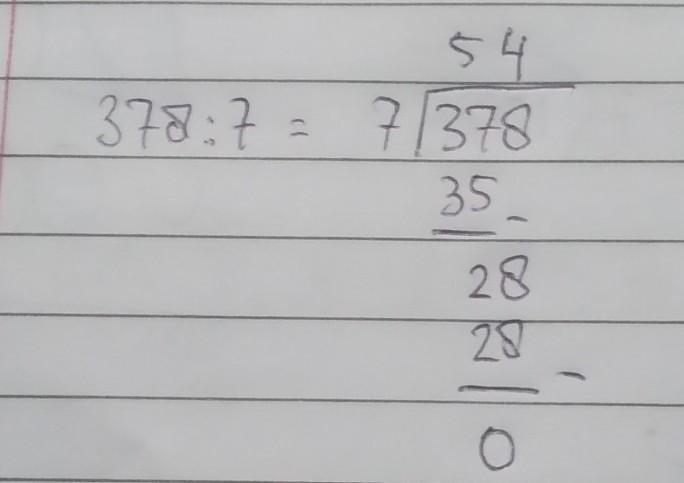 54
378:7 = 7√378
35 -
28
28 -
0